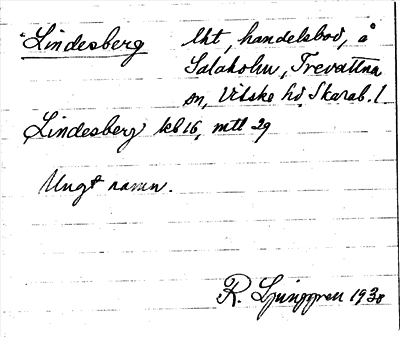 Lindesberg lht, handelsbod, å
Salaholm, Trevattna
sn, Vilske hd, Skarab. l.
Lindesberg kb 16, mtl 29
Ungt namn.
R. Ljunggren 1938